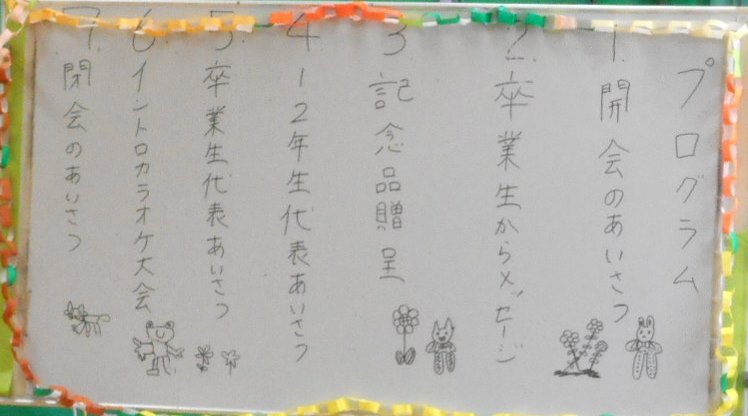 プログラム
1.開会のあいさつ
2.卒業生からメッセージ
3記念品贈呈
4 12年生代表あいさつ
5.卒業生代表あいさつ
6.イントロカラオケ大会
7.閉会のあいさつ